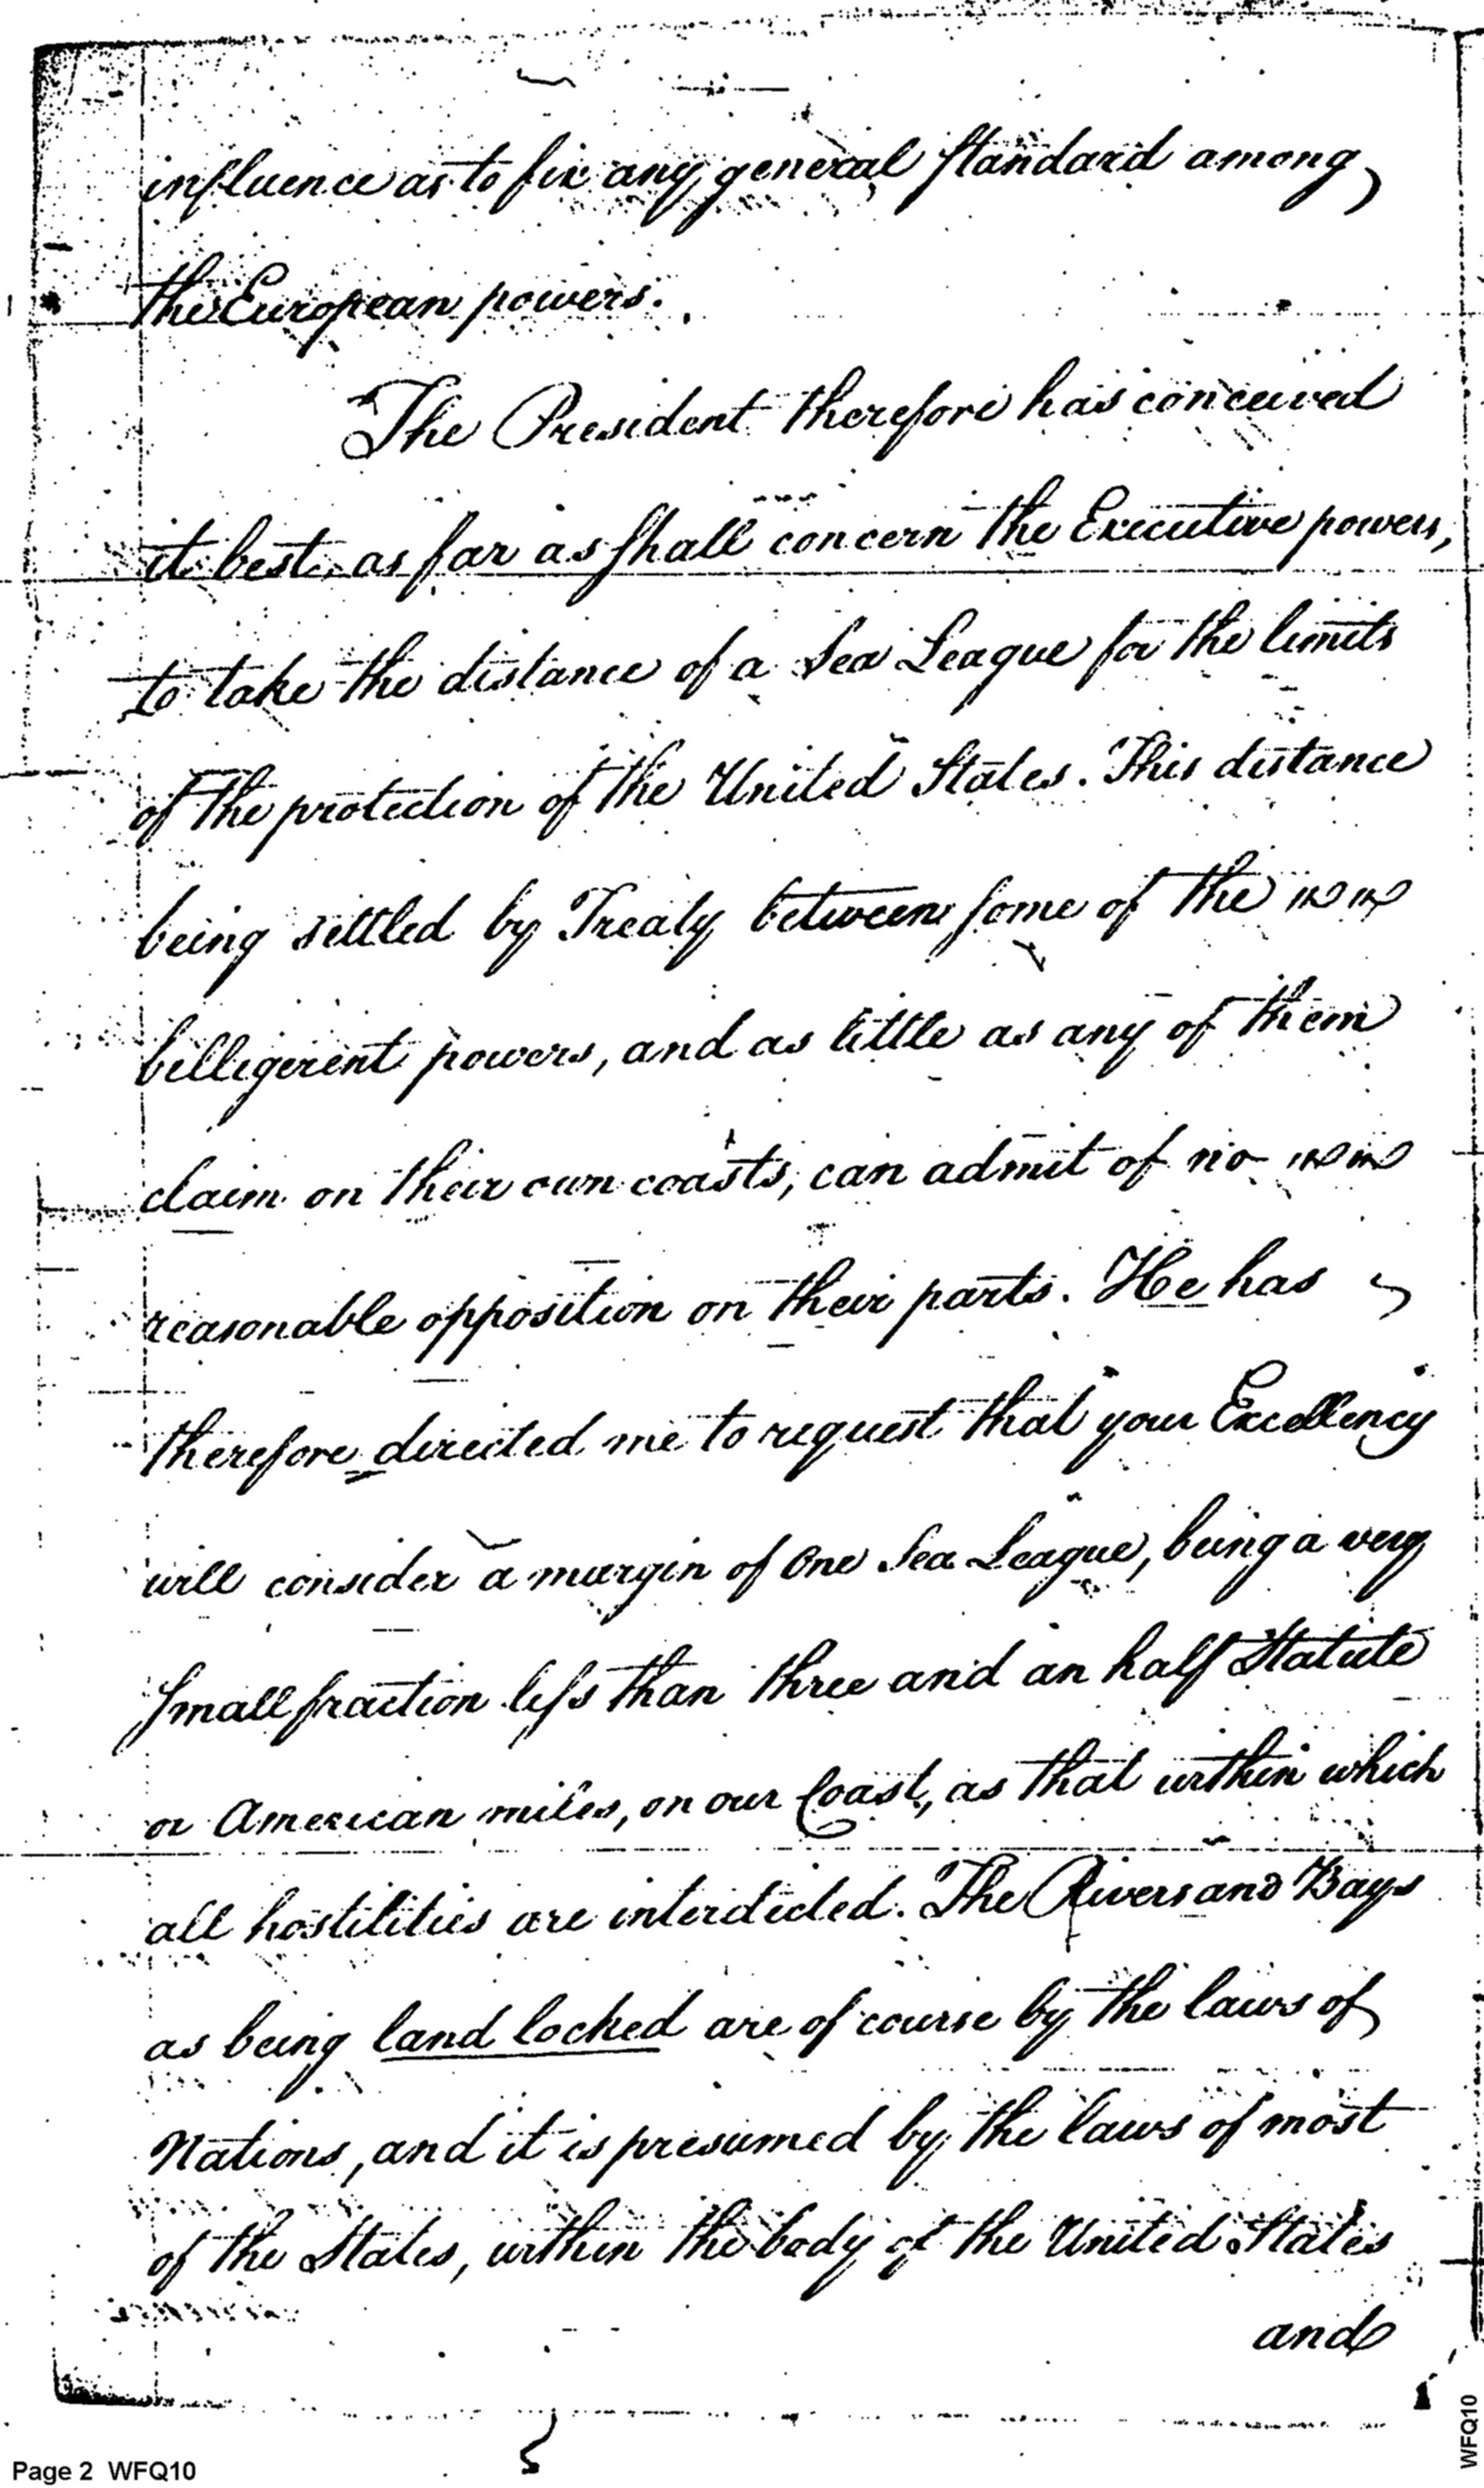 influence as to fix any general standard among
the European powers.
The President therefore has conceived
it best, as far as shall concern the Executive powers,
to take the distance of a Sea League for the limits
of the protection of the United States. This distance
being settled by Treaty between some of the
belligerent powers, and as little as any of them
claim on their own coasts, can admit of no
reasonable opposition on their parts. He has
therefore directed me to request that your Excellency
will consider a margin of one Sea League, being a very
small fraction less than three and an half Statute
or American miles, on our Coast, as that within which
all hostilities are interdicted. The Rivers and Bays
as being land locked are of course by the laws of
Nations, and it is presumed by the laws of most
of the States, within the body of the United States
and
Page 2 WFQ10
WFQ10